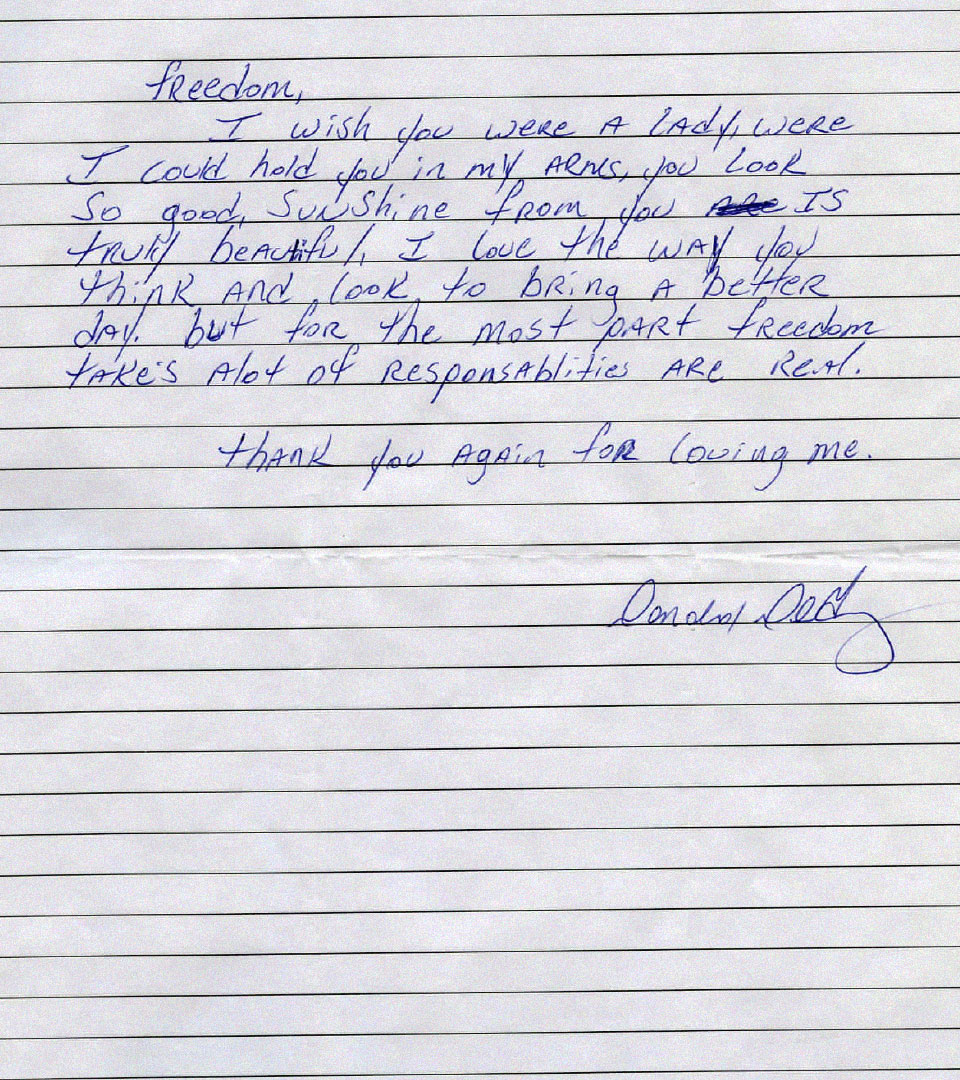 freedom,
I wish you were A lAdy, were
I could hold you in my ARMS, you look
So good, SunShine from you IS
truly beAutiful, I love the wAy you
think And look to bring A better
dAy. but for the most pArt freedom
tAke's Alot of ResponsAblities ARe ReAl.
thAnk you AgAin for loving me.